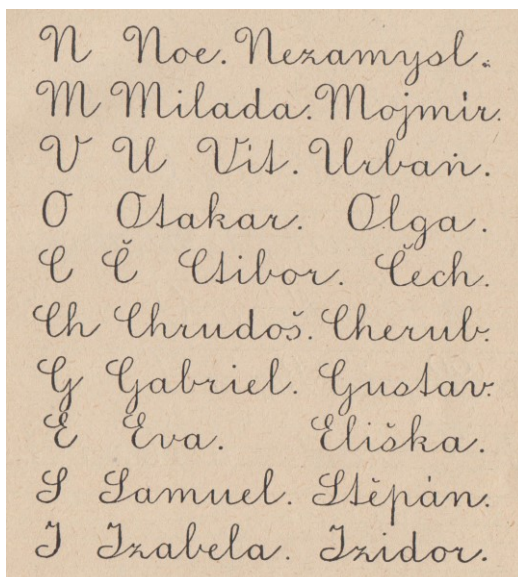 N Noe. Nezamysl.
M Milada. Mojmír.
V U Vít. Urban.
O Otakar. Olga.
C Č Ctibor. Čech.
Ch Chrudoš. Cherub.
G Gabriel. Gustav.
E Eva. Eliška.
S Samuel. Štěpán.
I Izabela. Izidor.